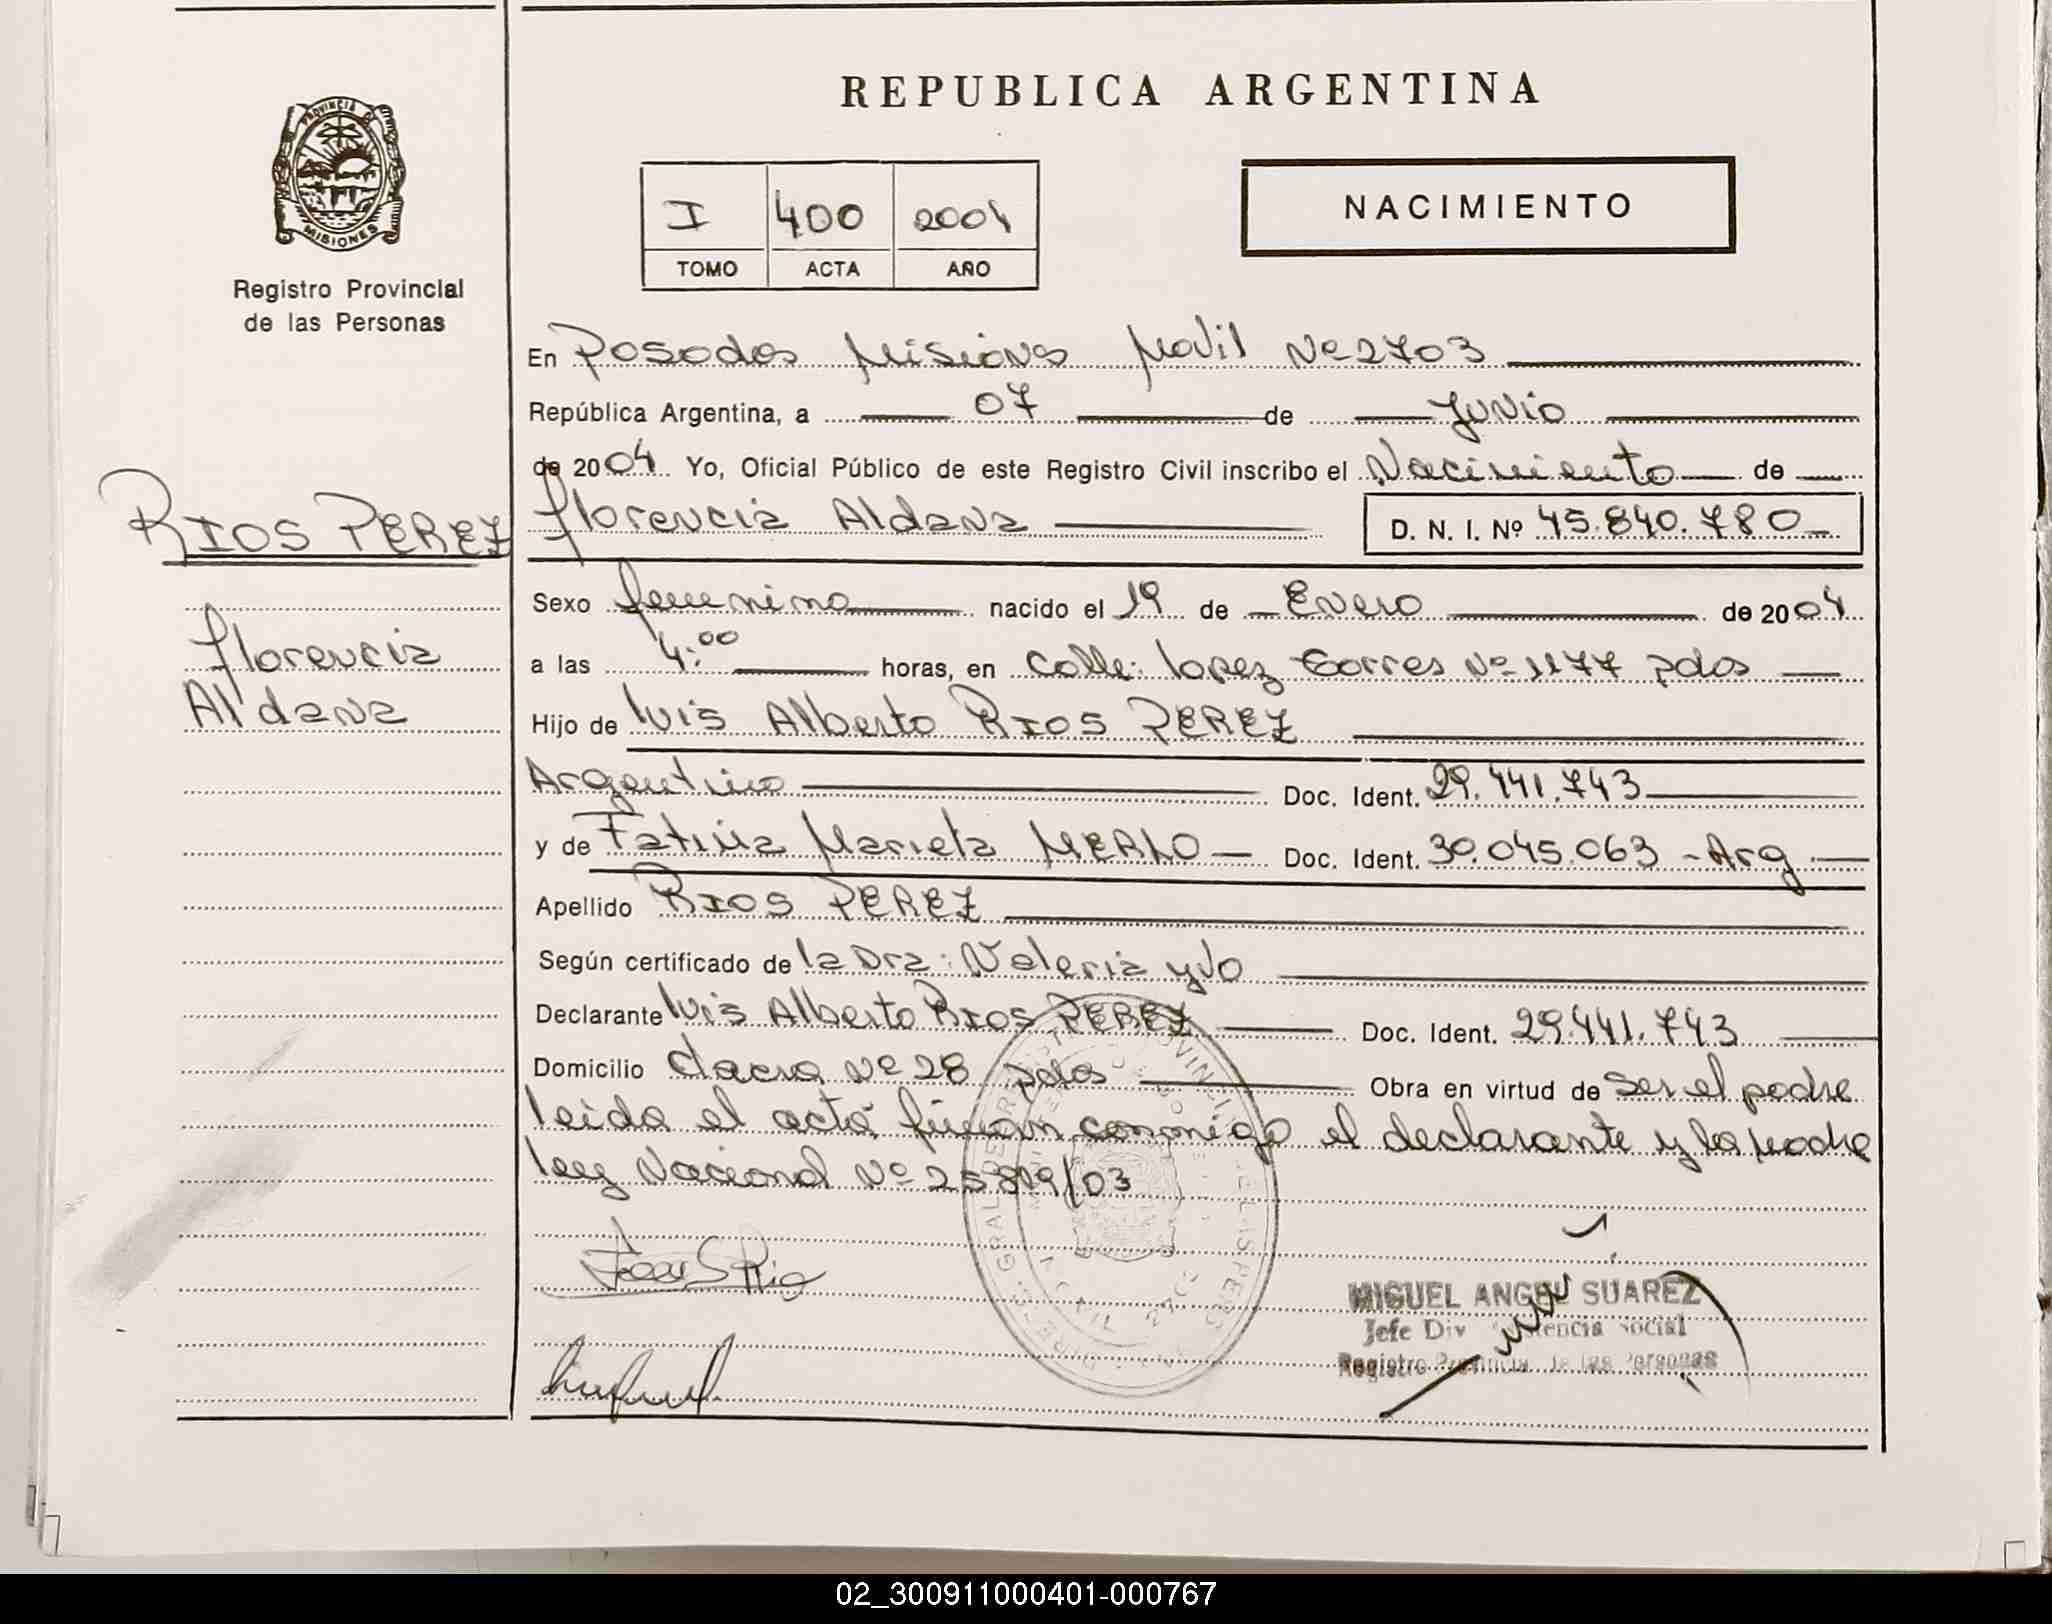 REPUBLICA ARGENTINA
PROVINCIA DE MISIONES
Registro Provincial
de las Personas
I 400 2004
TOMO ACTA AÑO
NACIMIENTO
En Posadas Misiones Movil Nº 2703
República Argentina, a 07 de Junio
de 2004 Yo, Oficial Público de este Registro Civil inscribo el Nacimiento de
RIOS PEREZ
Florencia Aldana D. N. I. Nº 45.840.780
Sexo femenino nacido el 19 de Enero de 2004
Florencia
Aldana
a las 4:00 horas, en calle: lopez torres Nº 1177 pdas
Hijo de luis Alberto RIOS PEREZ
Argentino Doc. Ident. 29.441.743
y de Fatima Mariela MERLO Doc. Ident. 30.045.063 - Arg
Apellido RIOS PEREZ
Según certificado de la Dra: Valeria
Declarante luis Alberto Rios PEREZ Doc. Ident. 29.441.743
Domicilio chacra Nº 28 pdas Obra en virtud de ser el padre
leida el acta firman conmigo el declarante y la madre
ley Nacional Nº 25819/03
MIGUEL ANGEL SUAREZ
Jefe Div Social
Registro Provincial de las Personas
02_300911000401-000767